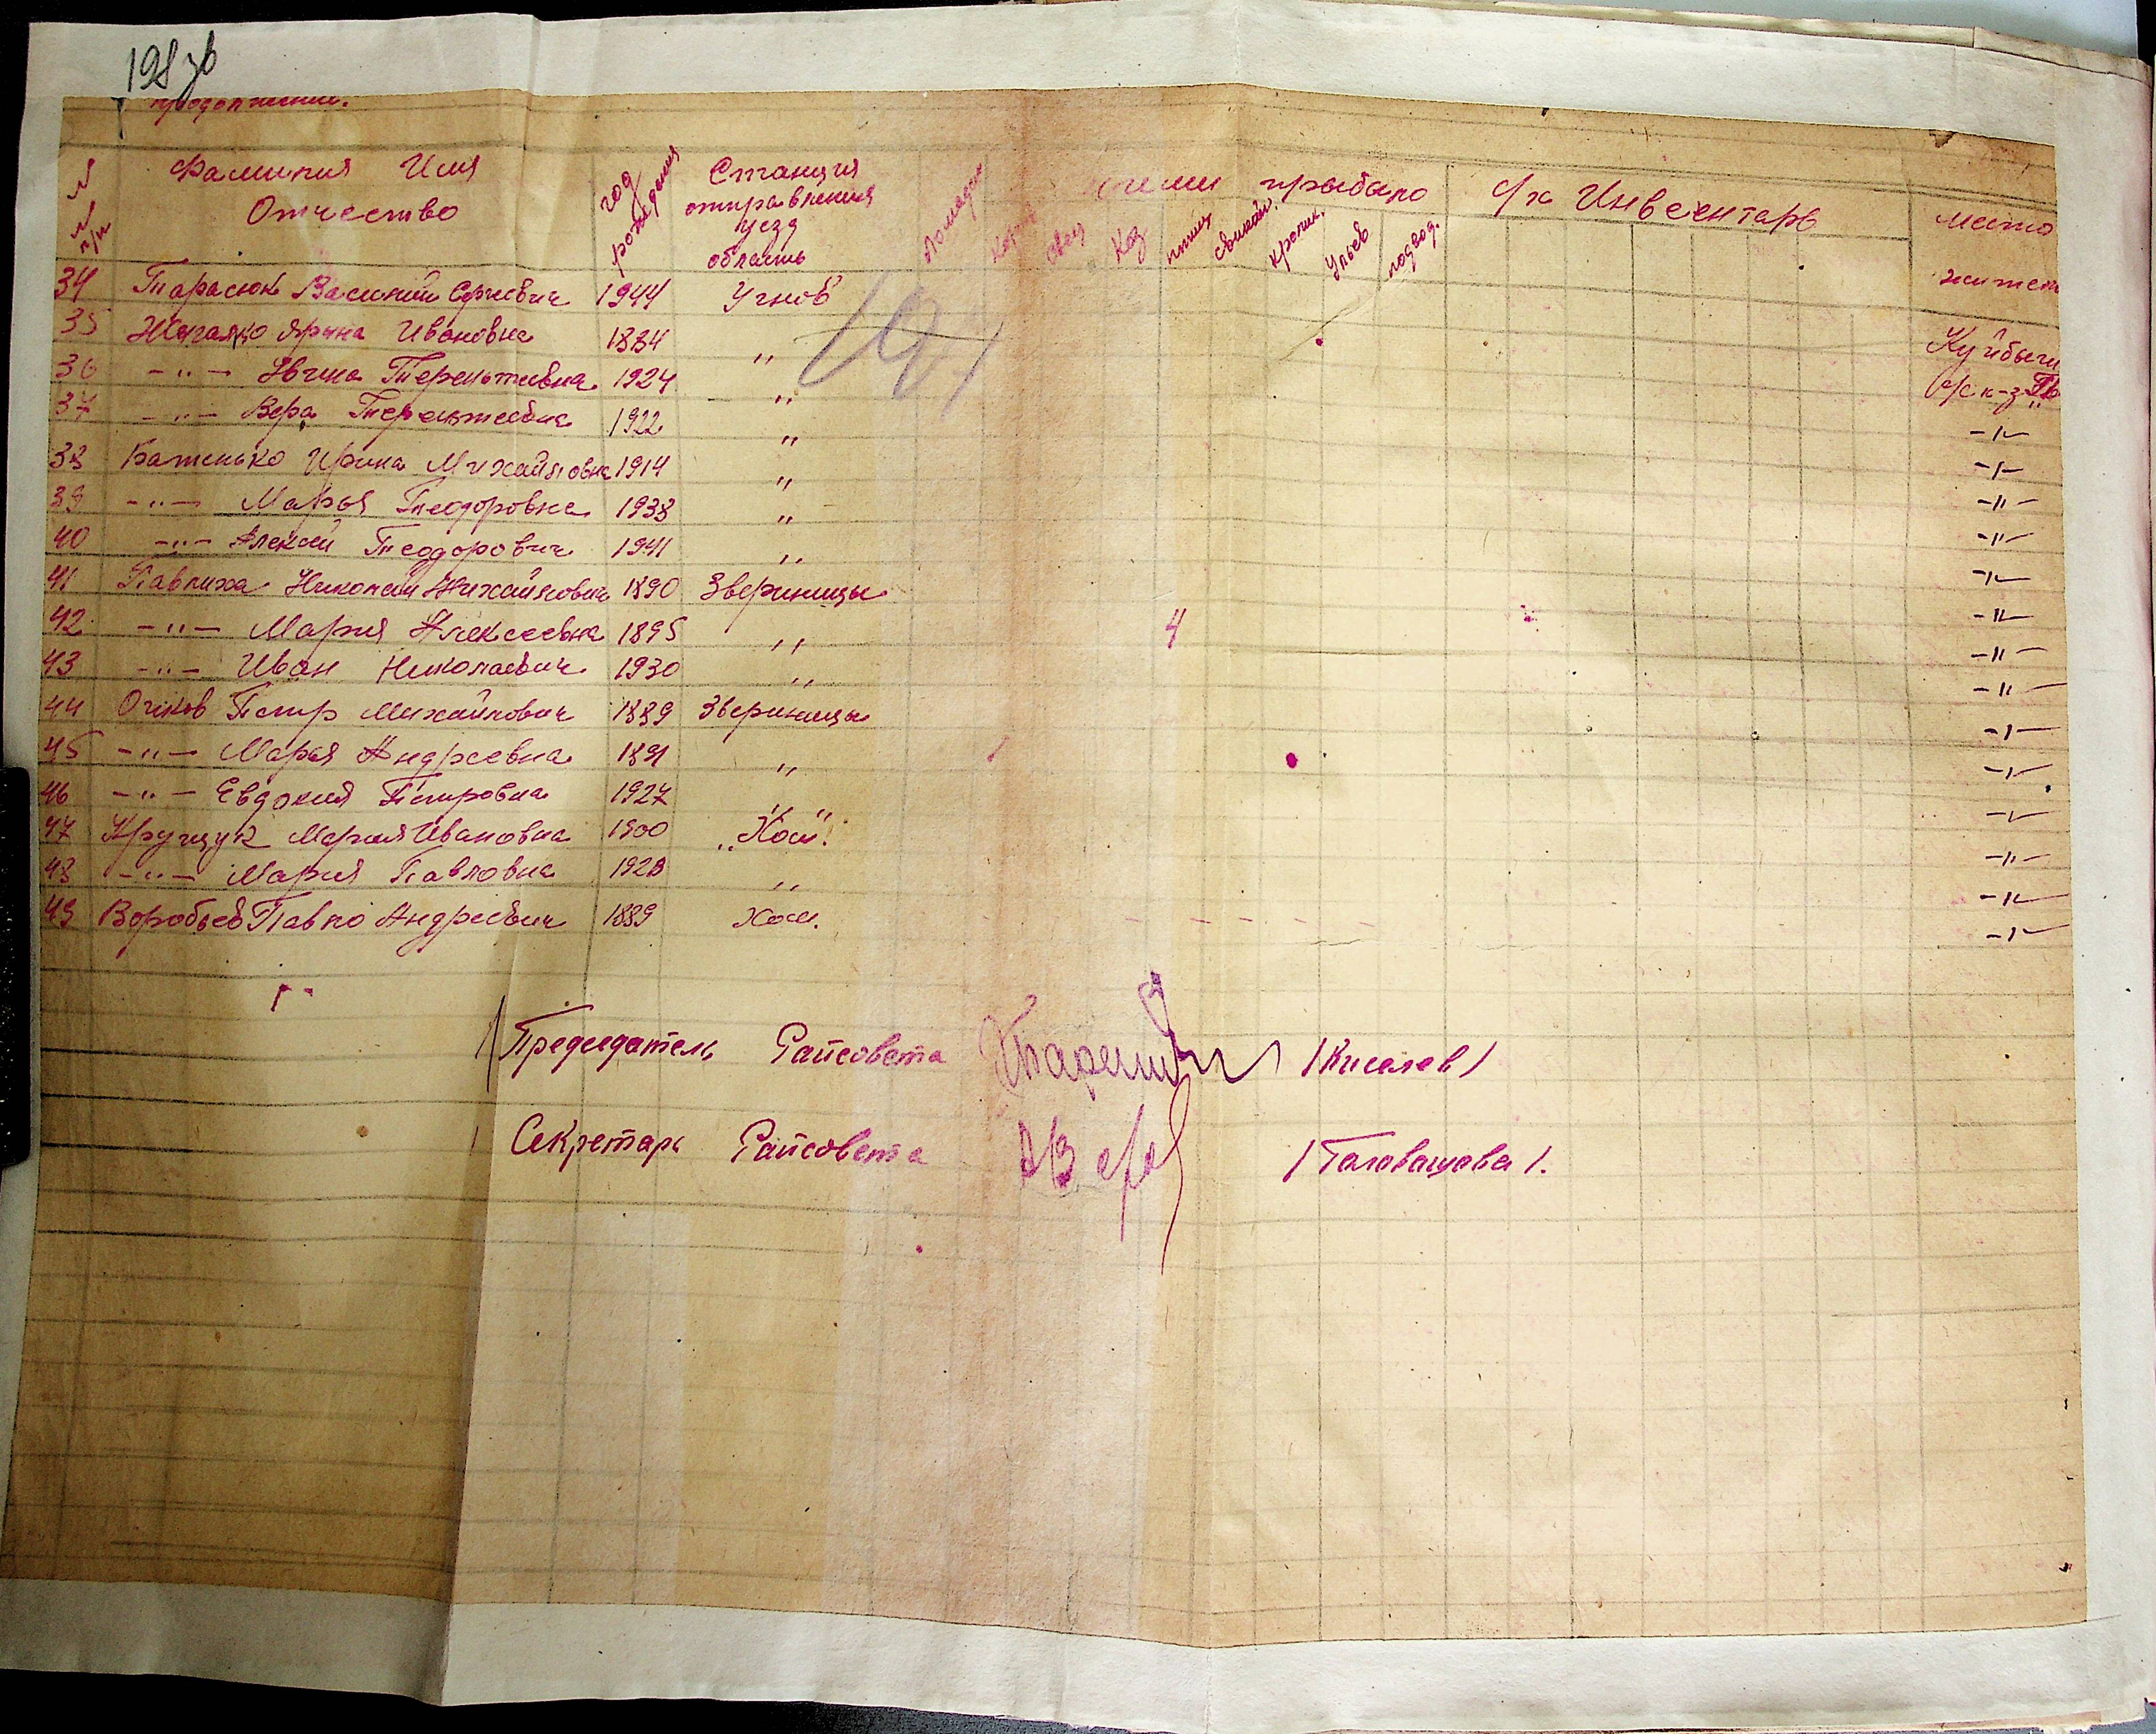 198 зв
продолжение.
№ № п/п
Фамилия Имя Отчество
год рождения
Станция отправления уезд область
Лошадей
Коров
Овец
Коз
птиц
свиней
кролик.
Ульев
подвод.
ними прибыло
с/х Инвеентарь
место жител
34 Тарасюк Василий Сергеевич 1944 Угнов
35 Ярина Ивановна 1884 " Куйбыш
36 -"- Терентиевна 1924 " с/с к-з
37 -"- Вера Терентиевна 1922 " -"-
38 Батенько Ирина Михайловна 1914 " -"-
39 -"- Марья Теодоровна 1938 " -"-
40 -"- Алексей Теодорович 1941 " -"-
41 Павлиха Николай Михайлович 1890 Звериницы -"-
42 -"- Мария Алексеевна 1895 " 4 -"-
43 -"- Иван Николаевич 1930 " -"-
44 Очков Петр Михайлович 1889 Звериницы -"-
45 -"- Марья Андреевна 1891 " -"-
46 -"- Евдокия Петровна 1927 " -"-
47 Мария Ивановна 1900 "Хом" -"-
48 -"- Мария Павловна 1928 " -"-
49 Воробьев Павло Андреевич 1889 Хом. -"-
Председатель Райсовета /Киселев/
Секретарь Райсовета /Головащова/.